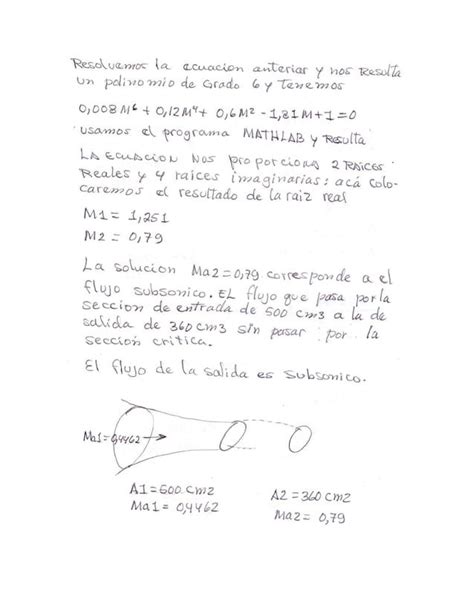 Resolvemos la ecuacion anterior y nos Resulta
un polinomio de Grado 6 y Tenemos
0,008M⁶ + 0,12M⁴ + 0,6M² - 1,81M + 1 = 0
usamos el programa MATHLAB y Resulta
LA ECUACION NOS proporciona 2 RAICES
Reales y 4 raices imaginarias; acá colo-
caremos el resultado de la raiz real
M1 = 1,251
M2 = 0,79
La solucion Ma2=0,79 corresponde a el
flujo subsonico. EL flujo que pasa por la
seccion de entrada de 500 cm3 a la de
salida de 360 cm3 sin pasar por la
sección critica.
El flujo de la salida es subsonico.
Ma1=0,4462
A1=500 cm2
A2=360 cm2
Ma1 = 0,4462
Ma2 = 0,79